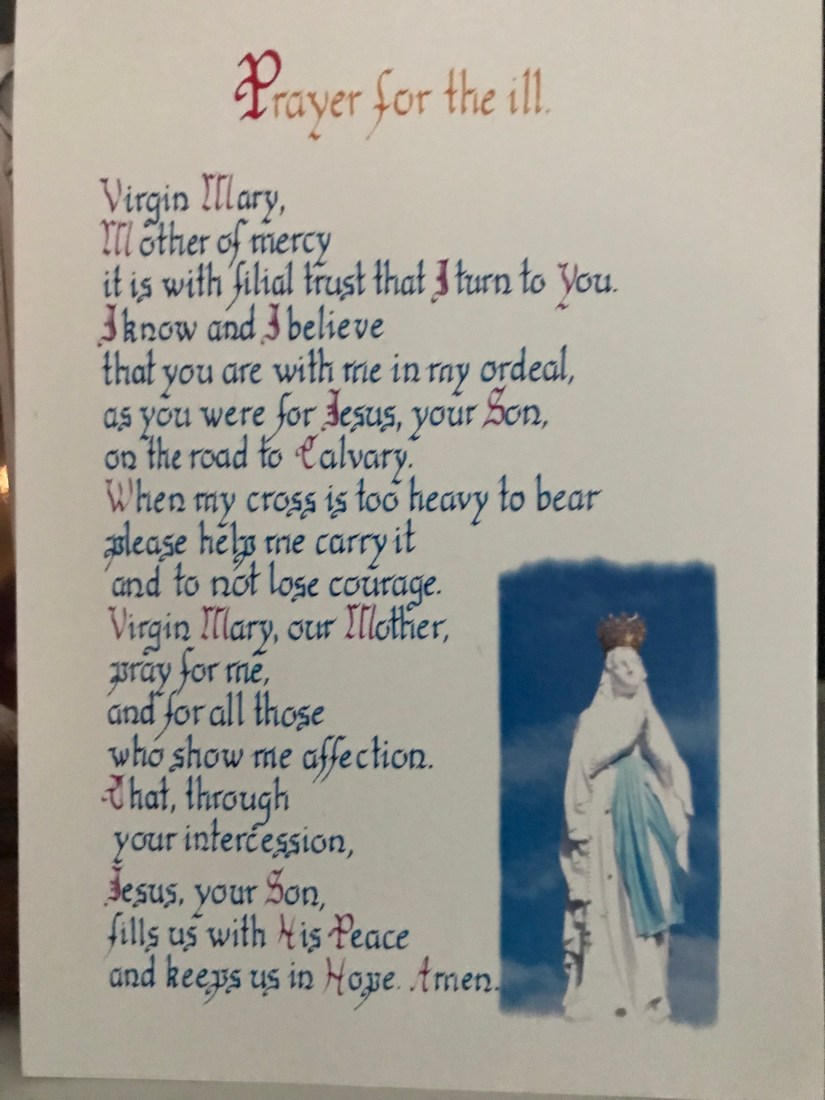 Prayer for the ill.
Virgin Mary,
Mother of mercy
it is with filial trust that I turn to You.
I know and I believe
that you are with me in my ordeal,
as you were for Jesus, your Son,
on the road to Calvary.
When my cross is too heavy to bear
please help me carry it
and to not lose courage.
Virgin Mary, our Mother,
pray for me,
and for all those
who show me affection.
That, through
your intercession,
Jesus, your Son,
fills us with His Peace
and keeps us in Hope. Amen.